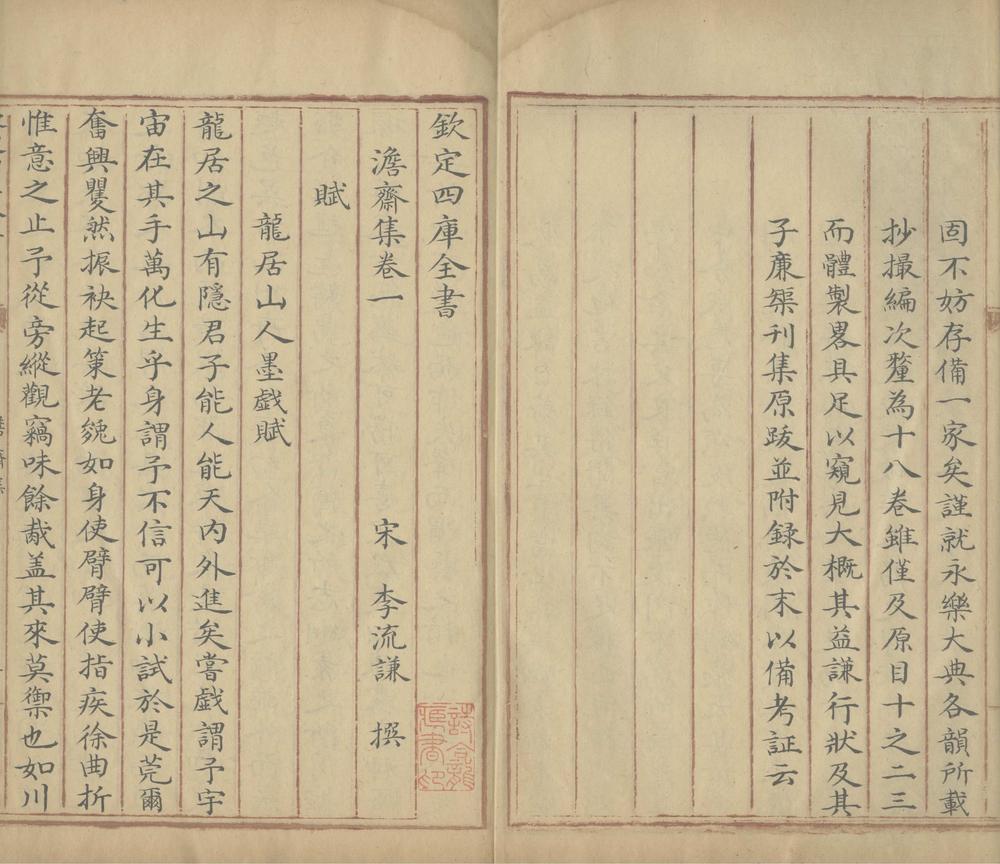 固不妨存備一家矣謹就永樂大典各韻所載
抄撮編次釐為十八卷雖僅及原目十之二三
而體製畧具足以窺見大概其益謙行狀及其
子廉榘刊集原跋並附録於末以備考証云
欽定四庫全書
澹齋集卷一 宋 李流謙 撰
賦
龍居山人墨戲賦
龍居之山有隱君子能人能天内外進矣嘗戲謂予宇
宙在其手萬化生乎身謂予不信可以小試於是莞爾
奮興矍然振袂起策老㲋如身使臂臂使指疾徐曲折
惟意之止予從旁縱觀竊味餘胾盖其來莫禦也如川